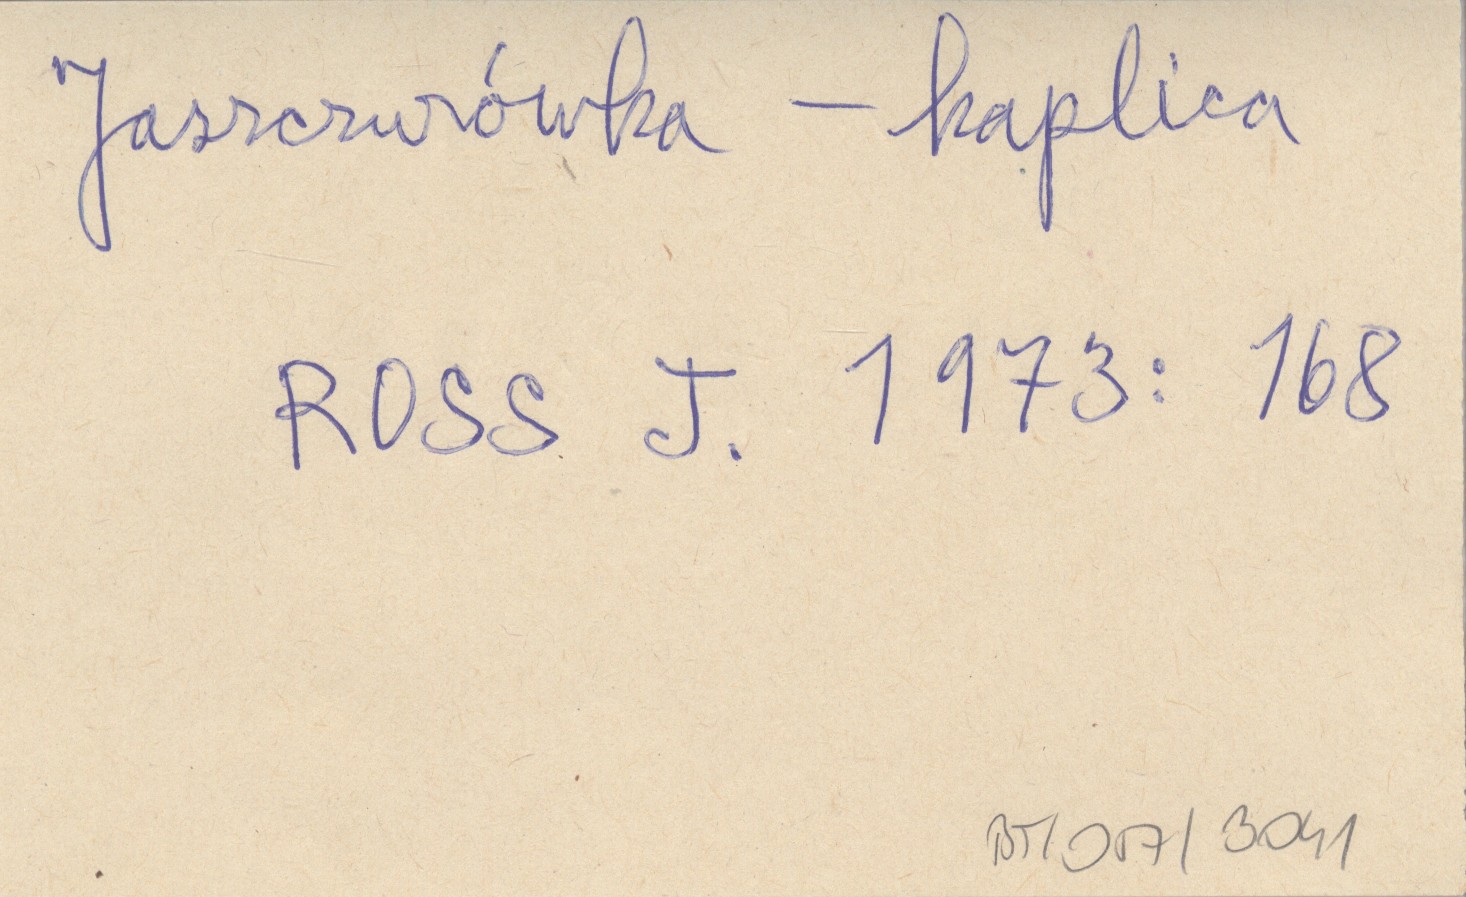 Jaszczurówka – kaplica
ROSS J. 1973: 168
BT/017/3041